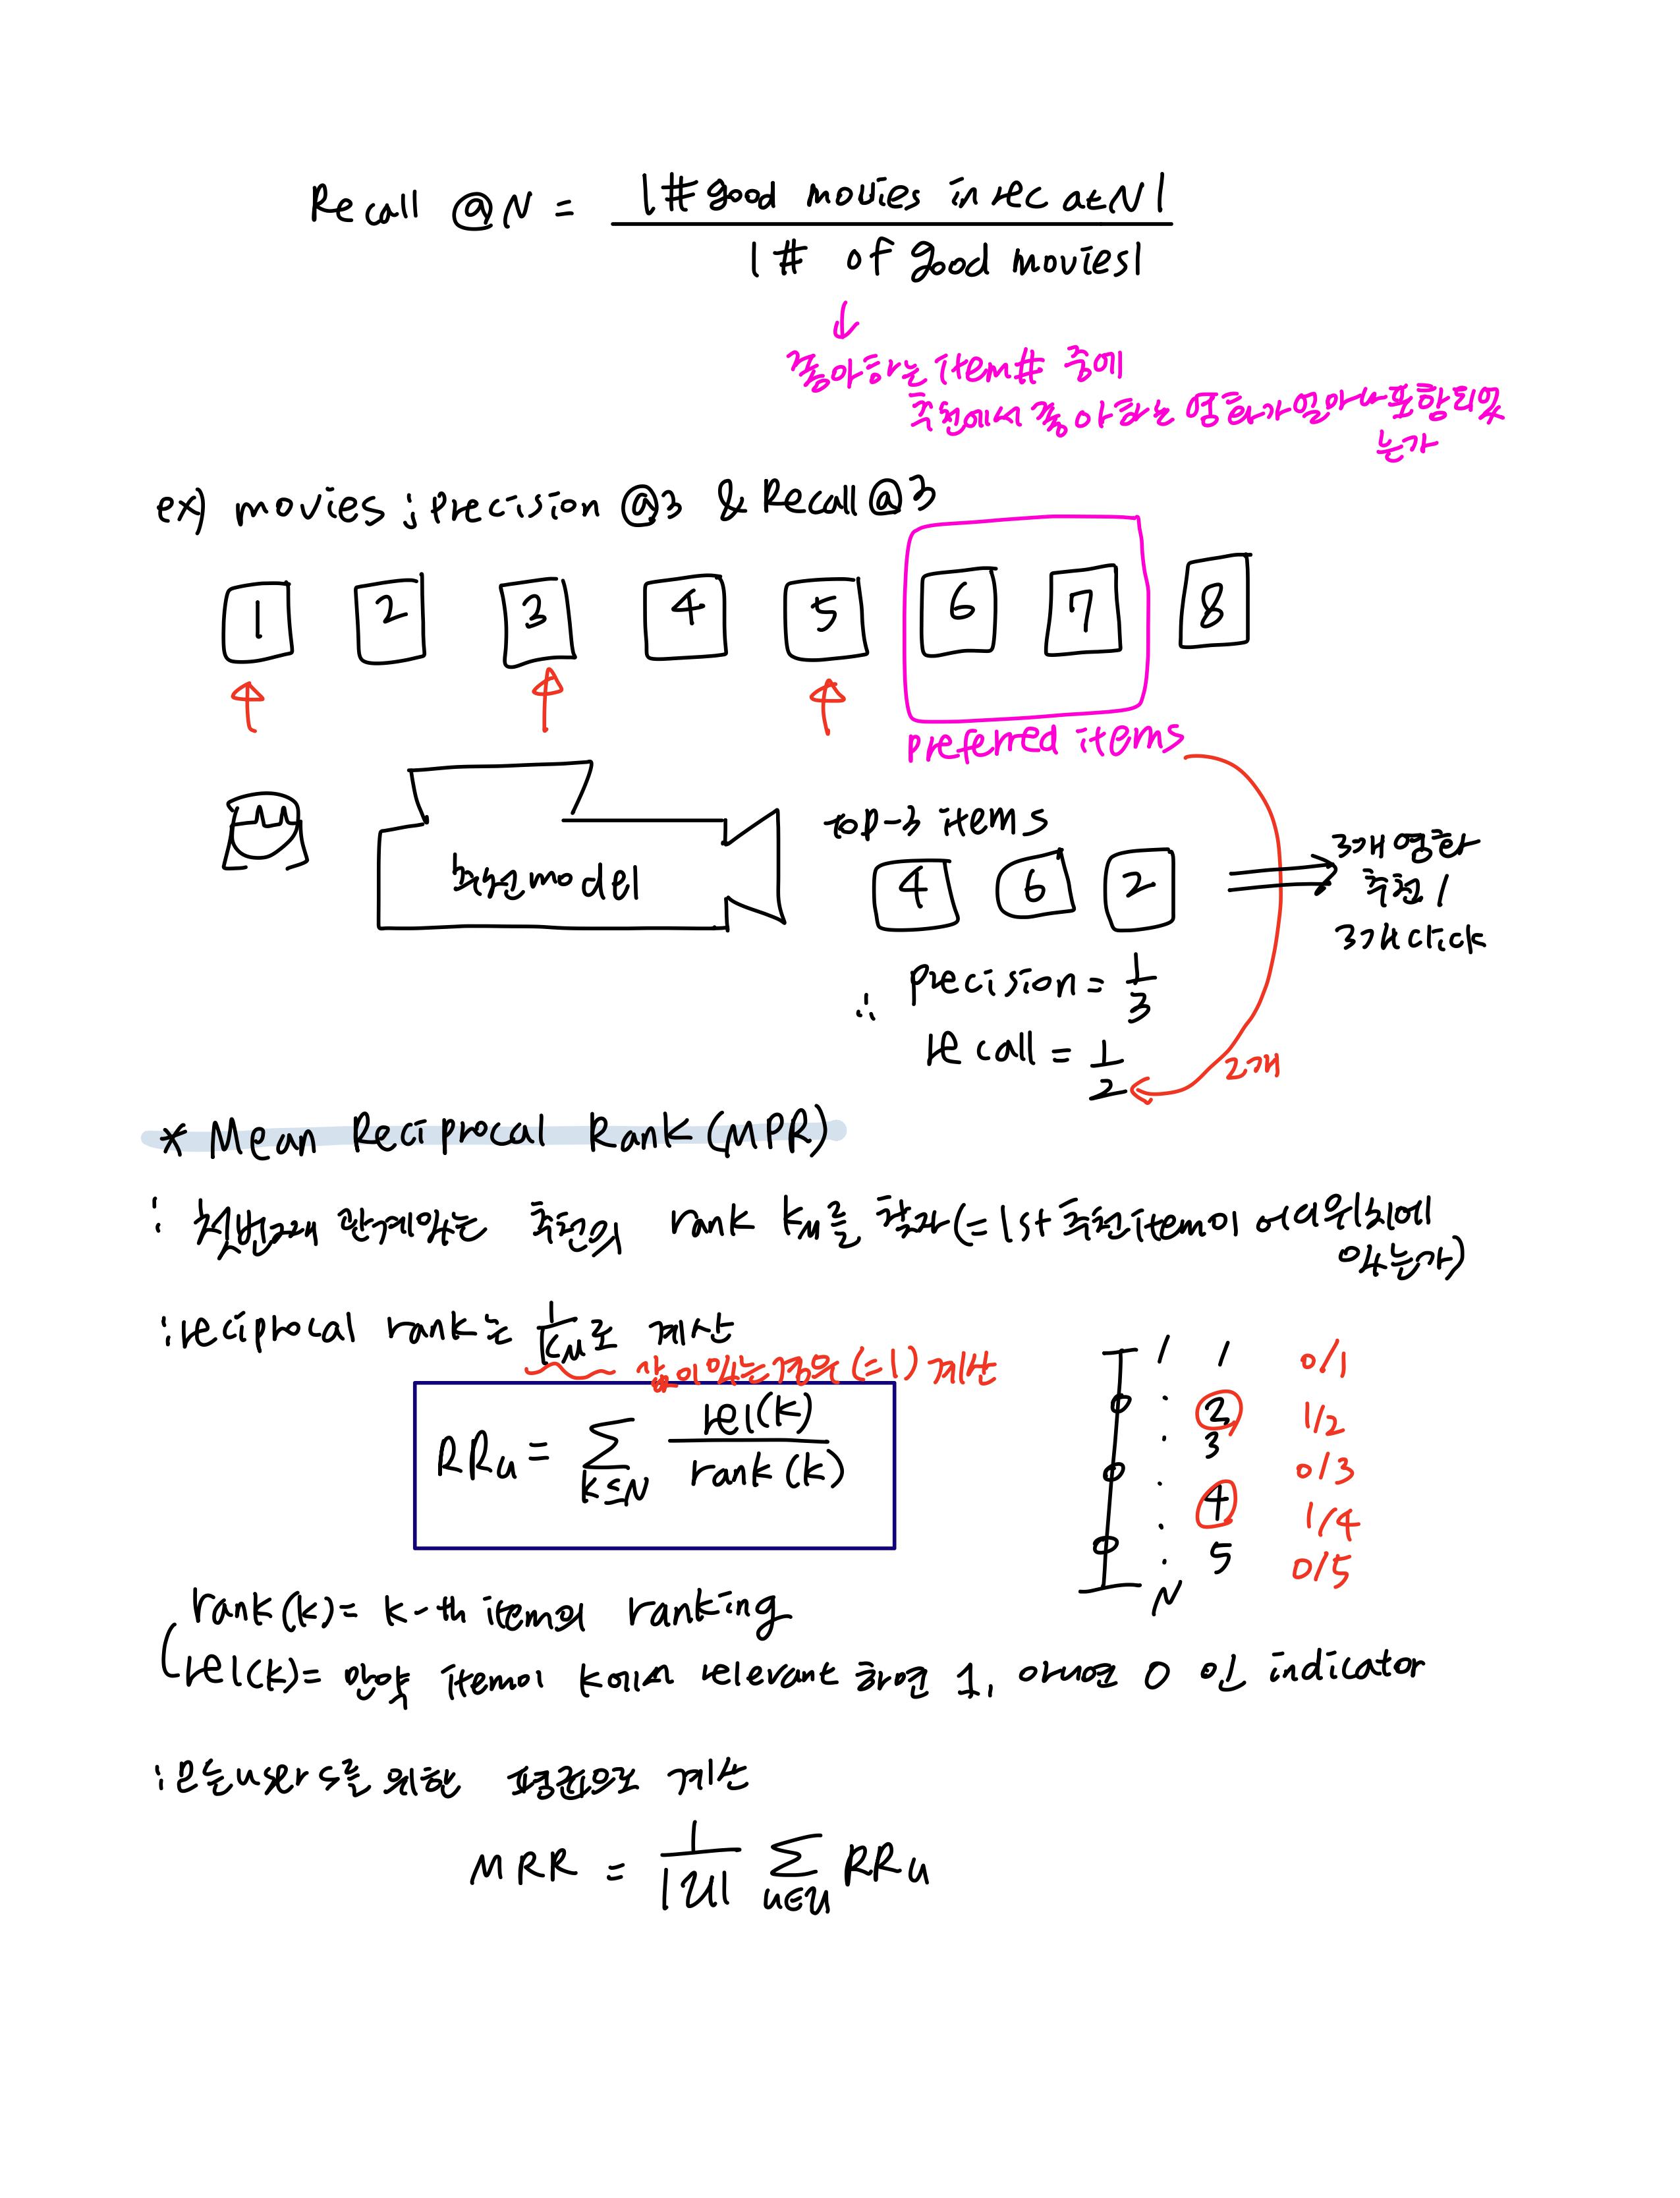 Recall @N = |#good movies in rec at N| / |# of good movies|
↓
좋아하는 item# 중에
추천에서 좋아하는 영화가 얼마나 포함되있
는가
ex) movies ; precision @3 & Recall@3
1 2 3 4 5 6 7 8
preferred items
추천model
top-3 items
4 6 2
3개 영화
추천 /
3개 click
∴ precision = 1/3
recall = 1/2
2개
* Mean Reciprocal Rank (MPR)
: 첫번째 관계있는 추천의 rank Ku를 찾자(= 1st 추천item이 어데 위치에
있는가)
: reciprocal rank는 1/Ku로 계산
값이 있는경우 (=1) 계산
RRu = Σ K≤N rel(k) / rank(k)
1 1 0/1
2 1/2
3 0/3
4 1/4
5 0/5
N
rank(k) = k-th item의 ranking
rel(k) = 만약 item이 k에서 relevant 하면 1, 아니면 0 인 indicator
: 모든 users를 위한 평균으로 계산
MRR = 1/|U| Σ u∈U RRu